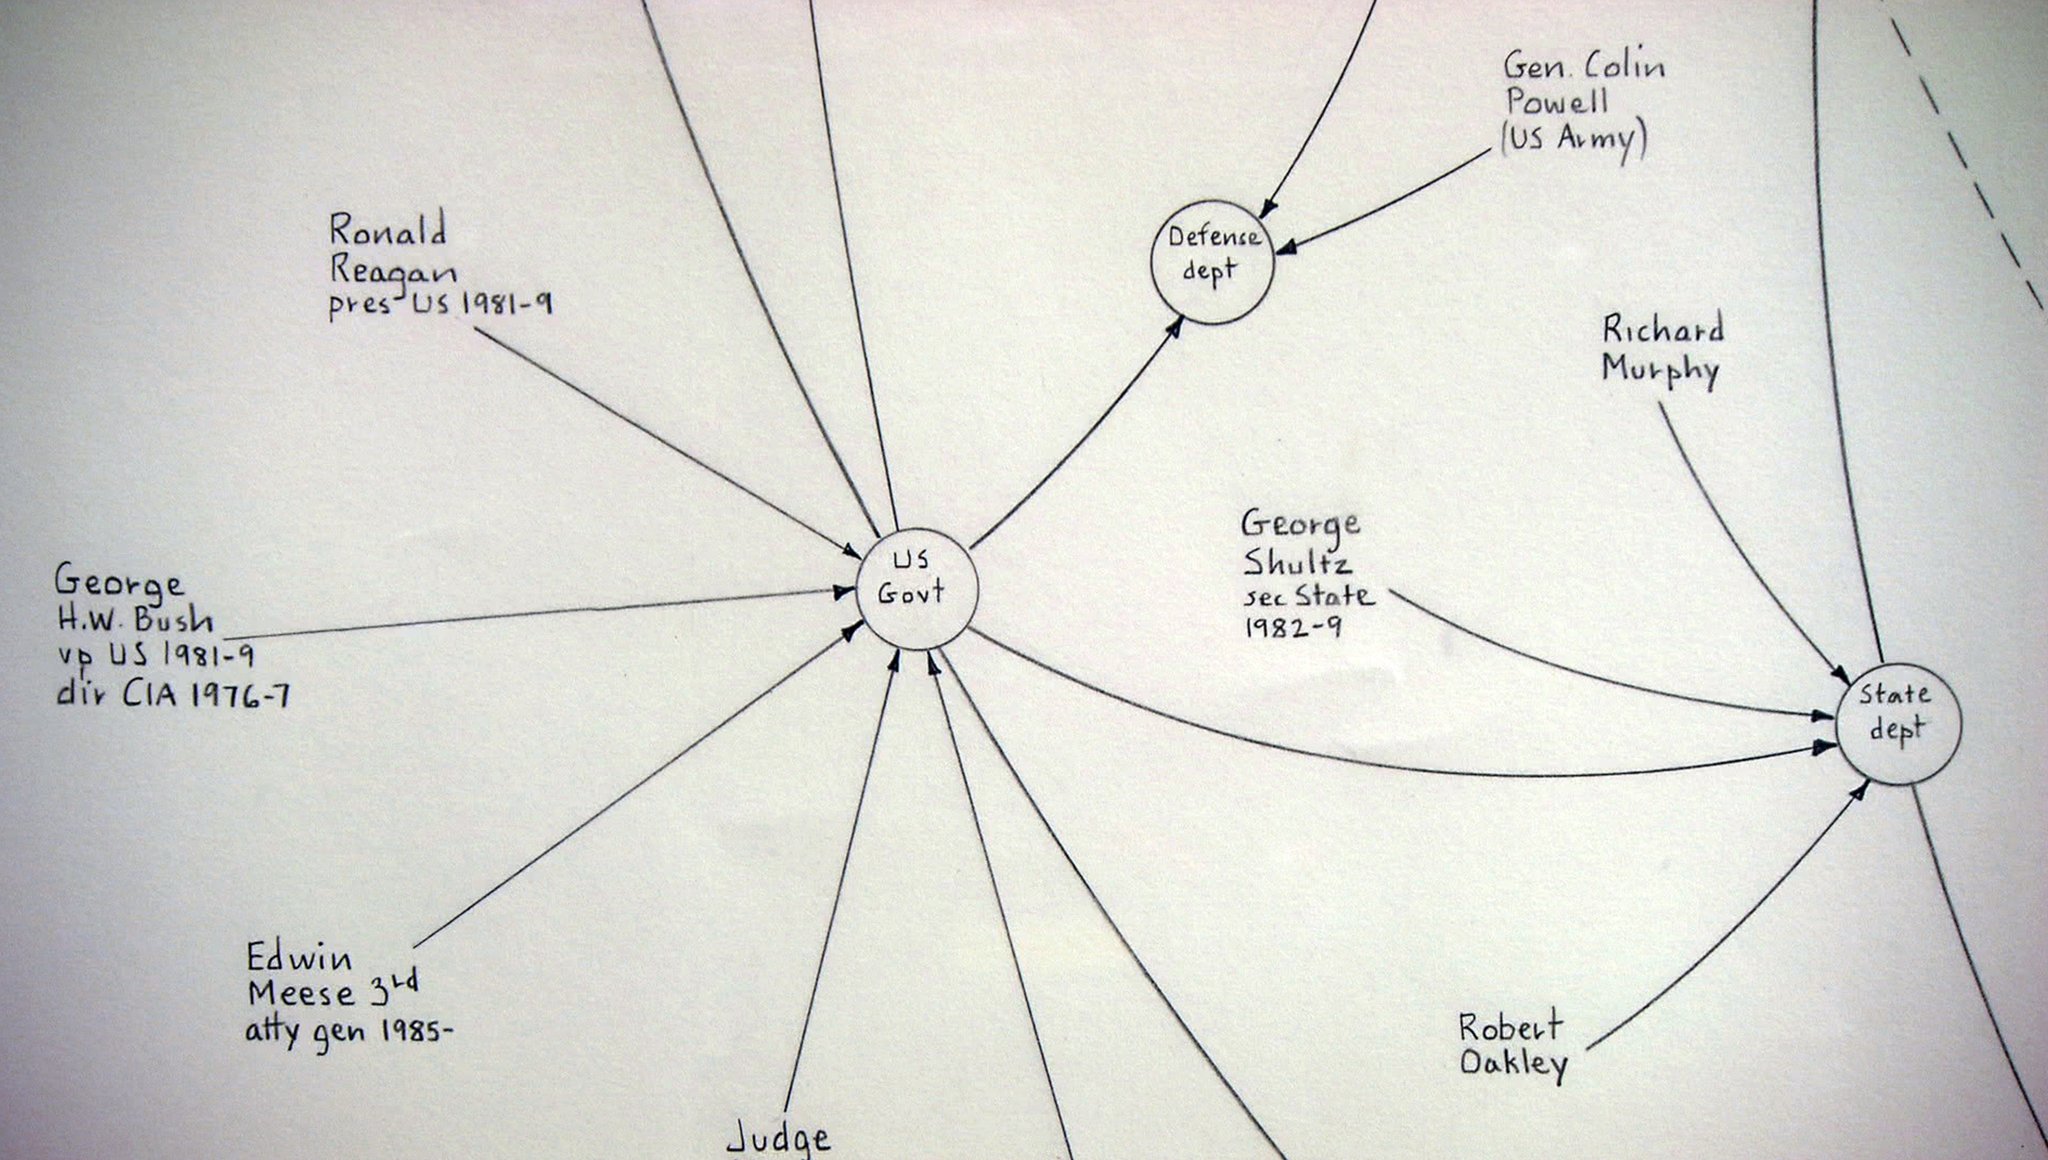 Gen. Colin
Powell
(US Army)
Ronald
Reagan
pres US 1981-9
Defense
dept
Richard
Murphy
George
Shultz
sec State
1982-9
US
Govt
George
H.W. Bush
vp US 1981-9
dir CIA 1976-7
State
dept
Edwin
Meese 3rd
atty gen 1985-
Robert
Oakley
Judge